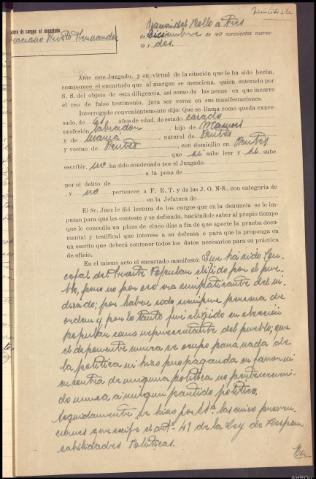 Lectura de cargos al encartado
Hernandez
Diciembre
dos.
Ante este Juzgado, y en virtud de la citación que se ha hecho,
comparece el encartado que al margen se menciona, quien enterado por
S. S. del objeto de esta diligencia, así como de las penas en que incurre
el reo de falso testimonio, jura ser como en sus manifestaciones
Interrogado convenientemente dijo: Que se llama como queda expre-
sado, de años de edad, de estado casado
profesión labrador, hijo de Manuel
y de María, natural de
y vecino de, con domicilio en
que si sabe leer y si sabe
escribir, no ha sido condenado por el Juzgado
a la pena de
por el delito de
y no pertenece a F. E. T. y de las J. O. N-S., con categoría de
en la Jefatura de
El Sr. Juez le dió lectura de los cargos que en la denuncia se le im-
putan para que los conteste y se defienda, haciéndole saber al propio tiempo
que le concedía un plazo de cinco días a fin de que aporte la prueba docu-
mental y testifical que interese a su defensa o para que la proponga en
un escrito que deberá contener todos los datos necesarios para su práctica
de oficio.
En el mismo acto el encartado manifestó: Que ha sido Con-
cejal del Frente Popular elegido por el pue-
blo, pero no por eso era simpatizante del in-
dicado; por haber sido siempre persona de
orden y por lo tanto fué elegido en elección
popular como representante del pueblo; que
el deponente nunca se ocupó para nada de
la política ni hizo propaganda en favor ni
en contra de ninguna política no pertenecien-
do nunca a ningun partido político.
Seguidamente se hizo por S.Sª. las cinco preven-
ciones que señala el artº- 49 de la Ley de Respon-
sabilidades Politicas.